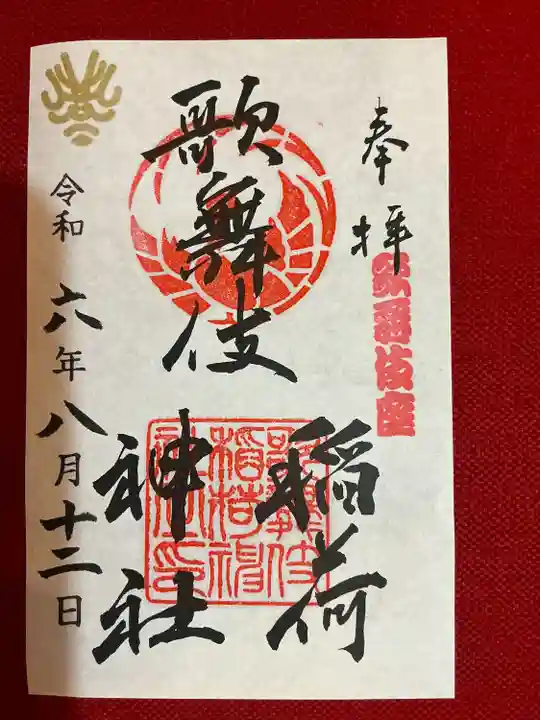 奉拝
歌舞伎座
歌舞伎
稲荷
神社
歌舞伎
稲荷神
社之印
令和六年八月十二日